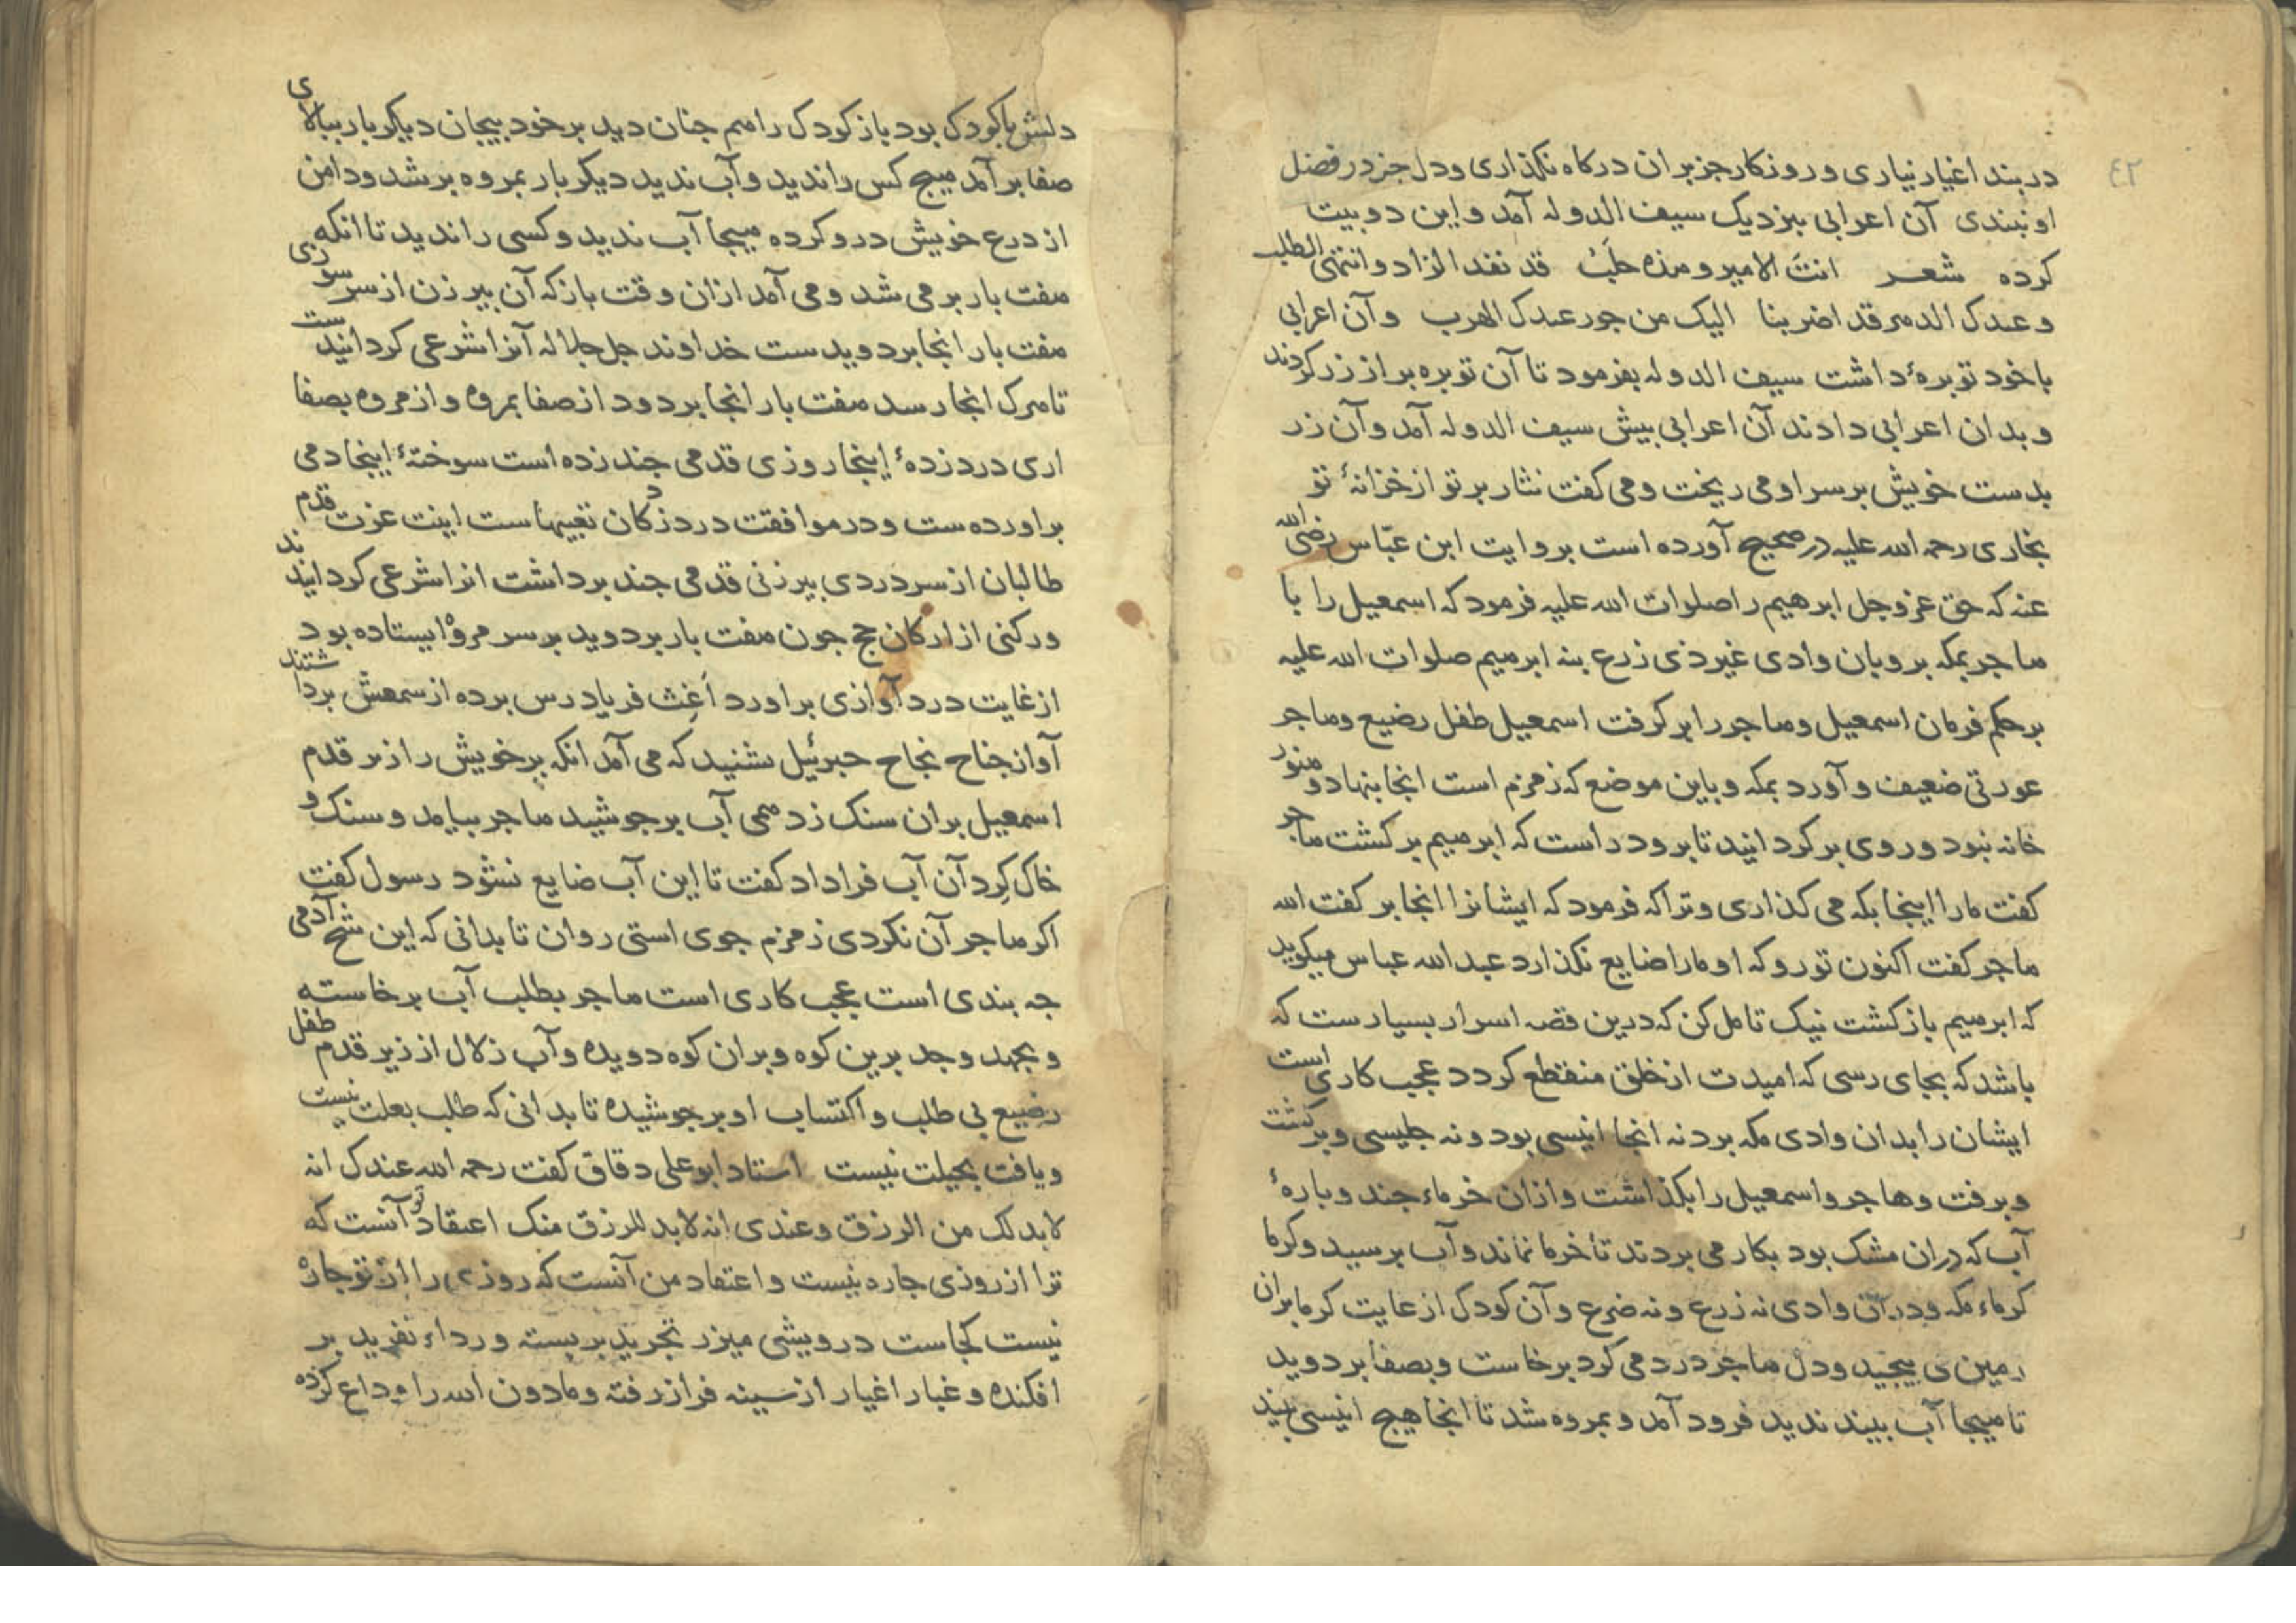 ۴۲
در بند اغیار نیاری و روزکار جز بران درکاه نکذاری و دل جز در فضل
او نبندی آن اعرابی بنزدیک سیف الدوله آمد و این دو بیت
کرده شعر انت الامیر و هذه حلب قد نفد الزاد و انتهی الطلب
و عبدک الدهر قد اضر بنا الیک من جور عبدک الهرب و آن اعرابی
با خود توبرهٔ داشت سیف الدوله بفرمود تا آن توبره بر از زر کردند
و بدان اعرابی دادند آن اعرابی بیش سیف الدوله آمد و آن زر
بدست خویش بر سر او می ریخت و می کفت نثار بر تو از خزانهٔ تو
بخاری رحمه الله علیه در صحیح آورده است بروایت ابن عبّاس رضی الله
عنه که حق عز و جل ابرهیم را صلوات الله علیه فرمود که اسمعیل را با
هاجر بمکه بر و بان وادی غیر ذی زرع بنه ابرهیم صلوات الله علیه
بر حکم فرمان اسمعیل و هاجر را بر کرفت اسمعیل طفل رضیع و هاجر
عورتی ضعیف و آورد بمکه و باین موضع که زمزم است انجا بنهاد و هنوز
خانه نبود و روی بر کردانید تا برود راست که ابرهیم بر کشت هاجر
کفت مارا اینجا بکه می کذاری و ترا که فرمود که ایشانرا انجا بر کفت الله
هاجر کفت اکنون تو رو که او مارا ضایع نکذارد عبد الله عباس میکوید
که ابرهیم باز کشت نیک تامل کن که درین قصه اسرار بسیارست که
باشد که بجای رسی که امیدت از خلق منقطع کردد عجب کاری است
ایشان را بدان وادی مکه برد نه انجا انیسی بود و نه جلیسی و بر کشت
و برفت و هاجر و اسمعیل را بکذاشت و ازان خرماء جند و بارهٔ
آب که دران مشک بود بکار می بردند تا خرما نماند و آب برسید و کرما
کرماء مکه و در آن وادی نه زرع و نه ضرع و آن کودک از غایت کرما بران
زمین می بیجید و دل هاجر درد می کرد برخاست و بصفا بر دوید
تا هیجا آب بیند ندید فرود آمد و بمروه شد تا انجا هیج انیسی بیند
دلش با کودک بود باز کودک را هم جنان دید بر خود بیجان دیکر بار ببالای
صفا بر آمد هیج کس را ندید و آب ندید دیکر بار بمروه بر شد و دامن
از درع خویش درو کرده هیجا آب ندید و کسی را ندید تا انکه
هفت بار بر می شد و می آمد ازان وقت باز که آن بیر زن از سر سوزی
هفت بار انجا بر دویدست خداوند جل جلاله آنرا شرعی کردانیدست
تا هرک انجا رسد هفت بار انجا بر دود از صفا بمروه و از مروه بصفا
اری درد زدهٔ اینجا روزی قدمی جند زده است سوختهٔ اینجا دمی
براورده ست و در موافقت درد زدکان تعبیهاست اینت عزت قدم
طالبان از سر دردی بیر زنی قدمی جند برداشت انرا شرعی کردانیدند
و رکنی از ارکان حج جون هفت بار بر دوید بر سر مروه ایستاده بود
از غایت درد آوازی براورد أغث فریاد رس برده از سمعش برداشتند
آواز جناح نجاح جبرئیل بشنید که می آمد انکه پر خویش را زیر قدم
اسمعیل بران سنک زد همی آب بر جوشید هاجر بیامد و سنک و
خاک کرد آن آب فرا داد کفت تا این آب ضایع نشود رسول کفت
اکر هاجر آن نکردی زمزم جوی استی روان تا بدانی که این شح آدمی
جه بندی است عجب کاری است هاجر بطلب آب برخاسته
و بجهد و جد برین کوه و بران کوه دویده و آب زلال از زیر قدم طفل
رضیع بی طلب و اکتساب او بر جوشیده تا بدانی که طلب بعلت نیست
و یافت بحیلت نیست استاد ابو علی دقاق کفت رحمه الله عندک انه
لابد لک من الرزق و عندی انه لابد للرزق منک اعتقاد تو آنست که
ترا از روزی جاره نیست و اعتقاد من آنست که روزی را از تو جاره
نیست کجاست درویشی میزر تجرید بر بسته و رداء تفرید بر
افکنده و غبار اغیار از سینه فراز رفته و مادون الله را وداع کرده